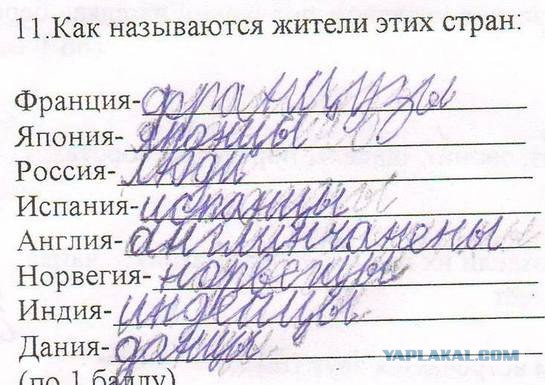 11.Как называются жители этих стран:
Франция-французы
Япония- японцы
Россия- люди
Испания-испанцы
Англия-англинчанены
Норвегия- норвегцы
Индия-индейцы
Дания-данцы
(по 1 баллу)
YAPLAKAL.COM